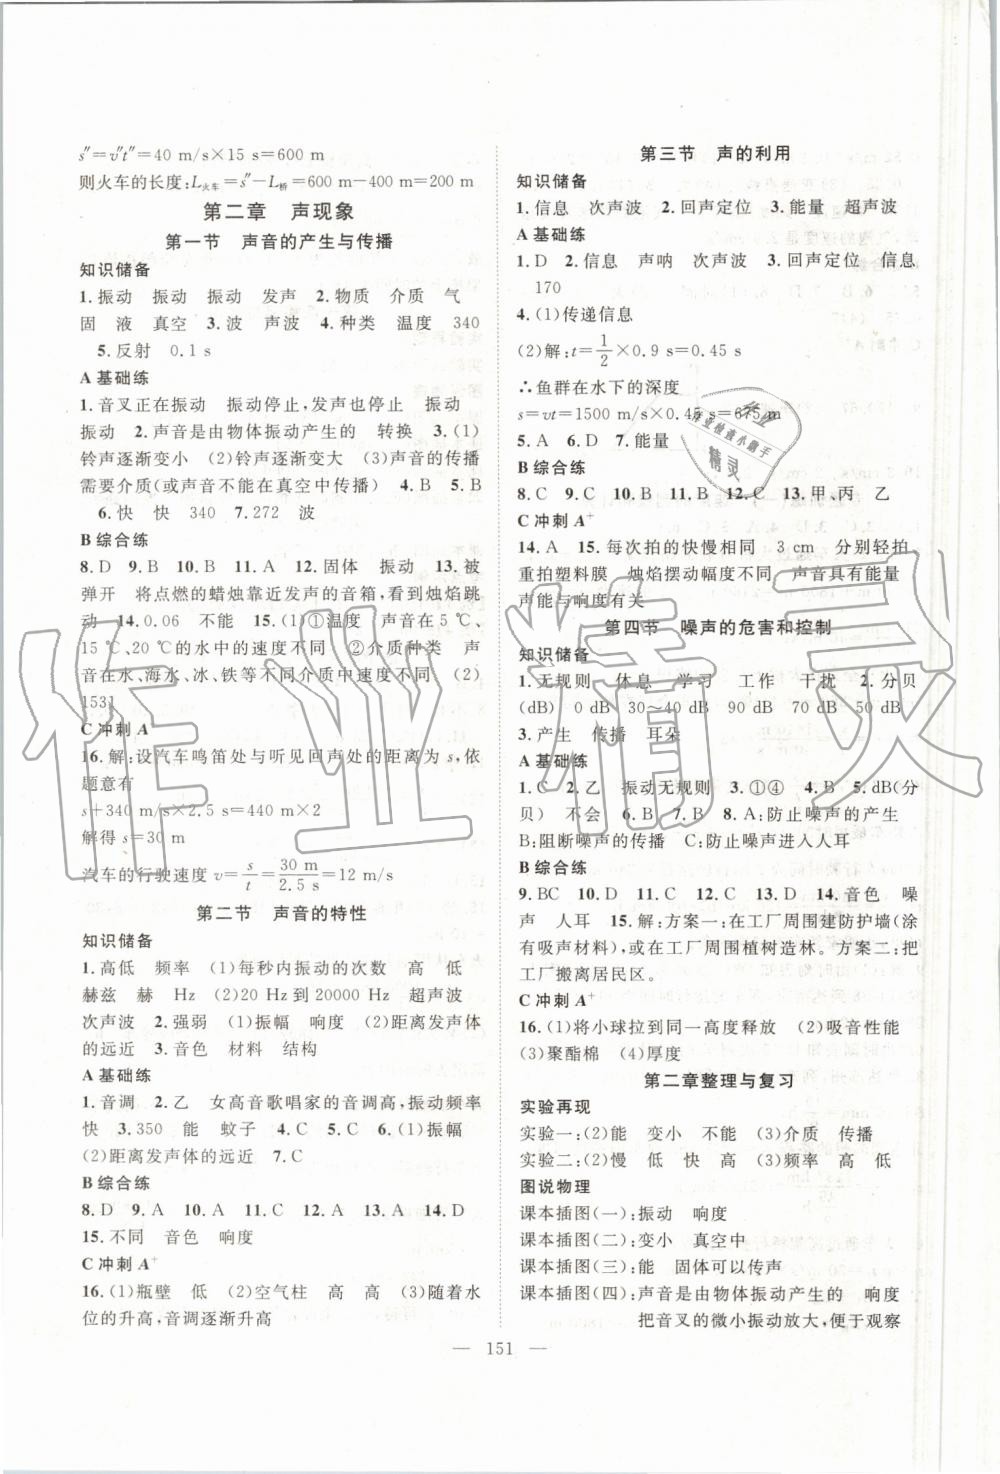 s″=v″t″=40 m/s×15 s=600 m
则火车的长度:L火车=s″-L桥=600 m-400 m=200 m
第二章 声现象
第一节 声音的产生与传播
知识储备
1.振动 振动 振动 发声 2.物质 介质 气
固 液 真空 3.波 声波 4.种类 温度 340
5.反射 0.1 s
A 基础练
1.音叉正在振动 振动停止,发声也停止 振动
振动 2.声音是由物体振动产生的 转换 3.(1)
铃声逐渐变小 (2)铃声逐渐变大 (3)声音的传播
需要介质(或声音不能在真空中传播) 4.B 5.B
6.快 快 340 7.272 波
B 综合练
8.D 9.B 10.B 11.C 12.固体 振动 13.被
弹开 将点燃的蜡烛靠近发声的音箱,看到烛焰跳
动 14.0.06 不能 15.(1)①温度 声音在5 ℃、
15 ℃、20 ℃的水中的速度不同 ②介质种类 声
音在水、海水、冰、铁等不同介质中速度不同 (2)
1531
C 冲刺 A+
16.解:设汽车鸣笛处与听见回声处的距离为 s,依
题意有
s+340 m/s×2.5 s=440 m×2
解得 s=30 m
汽车的行驶速度 v=s/t=30 m/2.5 s=12 m/s
第二节 声音的特性
知识储备
1.高低 频率 (1)每秒内振动的次数 高 低
赫兹 赫 Hz (2)20 Hz到20000 Hz 超声波
次声波 2.强弱 (1)振幅 响度 (2)距离发声体
的远近 3.音色 材料 结构
A 基础练
1.音调 2.乙 女高音歌唱家的音调高,振动频率
快 3.350 能 蚊子 4.C 5.C 6.(1)振幅
(2)距离发声体的远近 7.C
B 综合练
8.D 9.A 10.C 11.C 12.A 13.A 14.D
15.不同 音色 响度
C 冲刺 A+
16.(1)瓶壁 低 (2)空气柱 高 高 (3)随着水
位的升高,音调逐渐升高
第三节 声的利用
知识储备
1.信息 次声波 2.回声定位 3.能量 超声波
A 基础练
1.D 2.信息 声呐 次声波 3.回声定位 信息
170
4.(1)传递信息
(2)解:t=1/2×0.9 s=0.45 s
∴鱼群在水下的深度
s=vt=1500 m/s×0.45 s=675 m
5.A 6.D 7.能量
B 综合练
8.C 9.C 10.B 11.B 12.C 13.甲、丙 乙
C 冲刺 A+
14.A 15.每次拍的快慢相同 3 cm 分别轻拍
重拍塑料膜 烛焰摆动幅度不同 声音具有能量
声能与响度有关
第四节 噪声的危害和控制
知识储备
1.无规则 休息 学习 工作 干扰 2.分贝
(dB) 0 dB 30~40 dB 90 dB 70 dB 50 dB
3.产生 传播 耳朵
A 基础练
1.C 2.乙 振动无规则 3.①④ 4.B 5.dB(分
贝) 不会 6.B 7.B 8.A:防止噪声的产生
B:阻断噪声的传播 C:防止噪声进入人耳
B 综合练
9.BC 10.D 11.C 12.C 13.D 14.音色 噪
声 人耳 15.解:方案一:在工厂周围建防护墙(涂
有吸声材料),或在工厂周围植树造林。方案二:把
工厂搬离居民区。
C 冲刺 A+
16.(1)将小球拉到同一高度释放 (2)吸音性能
(3)聚酯棉 (4)厚度
第二章整理与复习
实验再现
实验一:(2)能 变小 不能 (3)介质 传播
实验二:(2)慢 低 快 高 (3)频率 高 低
图说物理
课本插图(一):振动 响度
课本插图(二):变小 真空中
课本插图(三):能 固体可以传声
课本插图(四):声音是由物体振动产生的 响度
把音叉的微小振动放大,便于观察
— 151 —
作业精灵
作业
作业检查小助手
精灵